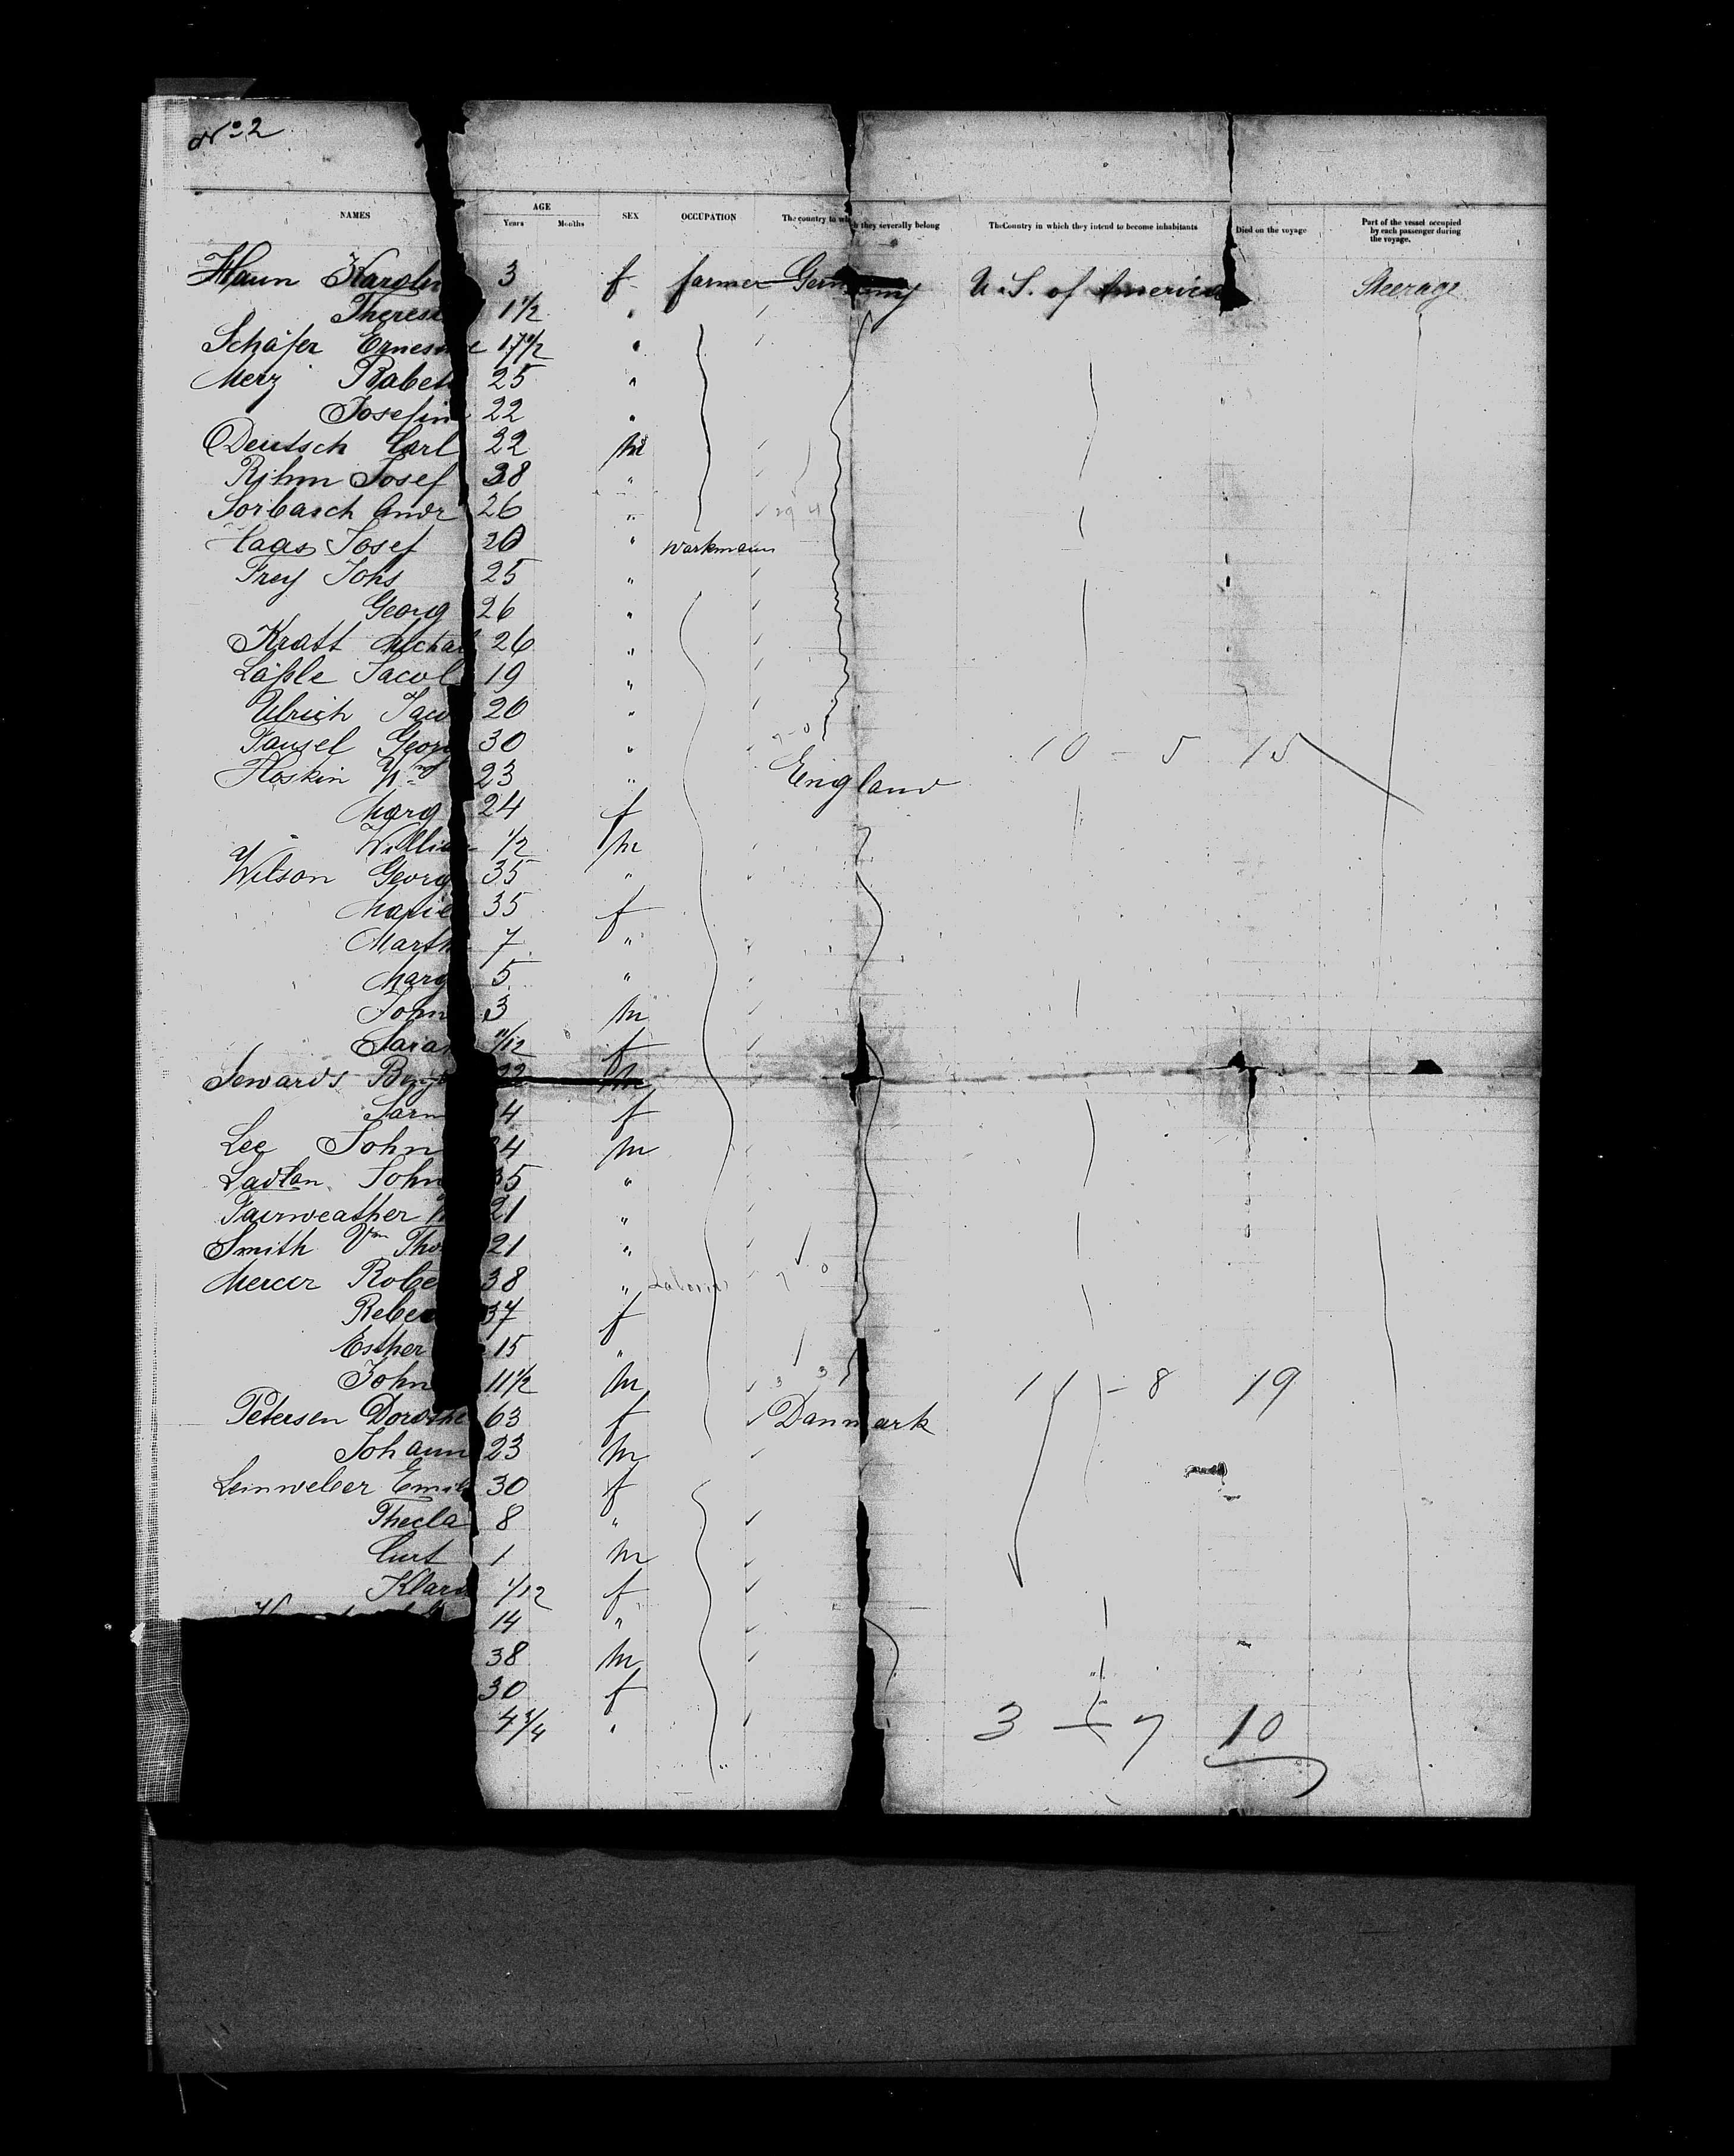 No 2
NAMES AGE Years Months SEX OCCUPATION The country to wh h they severally belong The Country in which they intend to become inhabitants Died on the voyage Part of the vessel occupied by each passenger during the voyage.
Haun Karolin 3 f farmer Germany U.S. of America Steerage
Theres 1 1/2 "
Schäfer Ernes e "
Merz Babet 25 "
Josefin 22 "
Deutsch Carl 22 m
Rihm Josef 38 "
Sorbasch Andr 26 "
Haas Josef 20 " workmann
Frey Johs 25 "
Georg 26 "
Kratt Micha 26 "
Läßle Jacob 19 "
Ulrich Jaco 20 "
Georg 30 " 10 - 5 15
Hoskin Wm 23 " England
Marg 24 f
Willia 1/2 m
Wilson Georg 35 "
Marie 35 f
Marth 7 "
Marg 5 "
John 3 m
Sarah 11/12 f
Sewards Benj 22 m
Sarn 4 f
Lee John 4 m
Ladlan John 35 "
Fairweather 21 "
Smith Wm Tho 21 "
Mercer Robe 38 " Laborer
Rebe 37 f
Esther 15 "
John 11 1/2 m 11 - 8 19
Petersen Dorothe 63 f Danmark
Johann 23 m
Leinweber Emil 30 f
Thecla 8 "
Curt 1 m
Klara 1/12 f
14 "
38 m
30 f
4 3/4 " 3 - 7 10